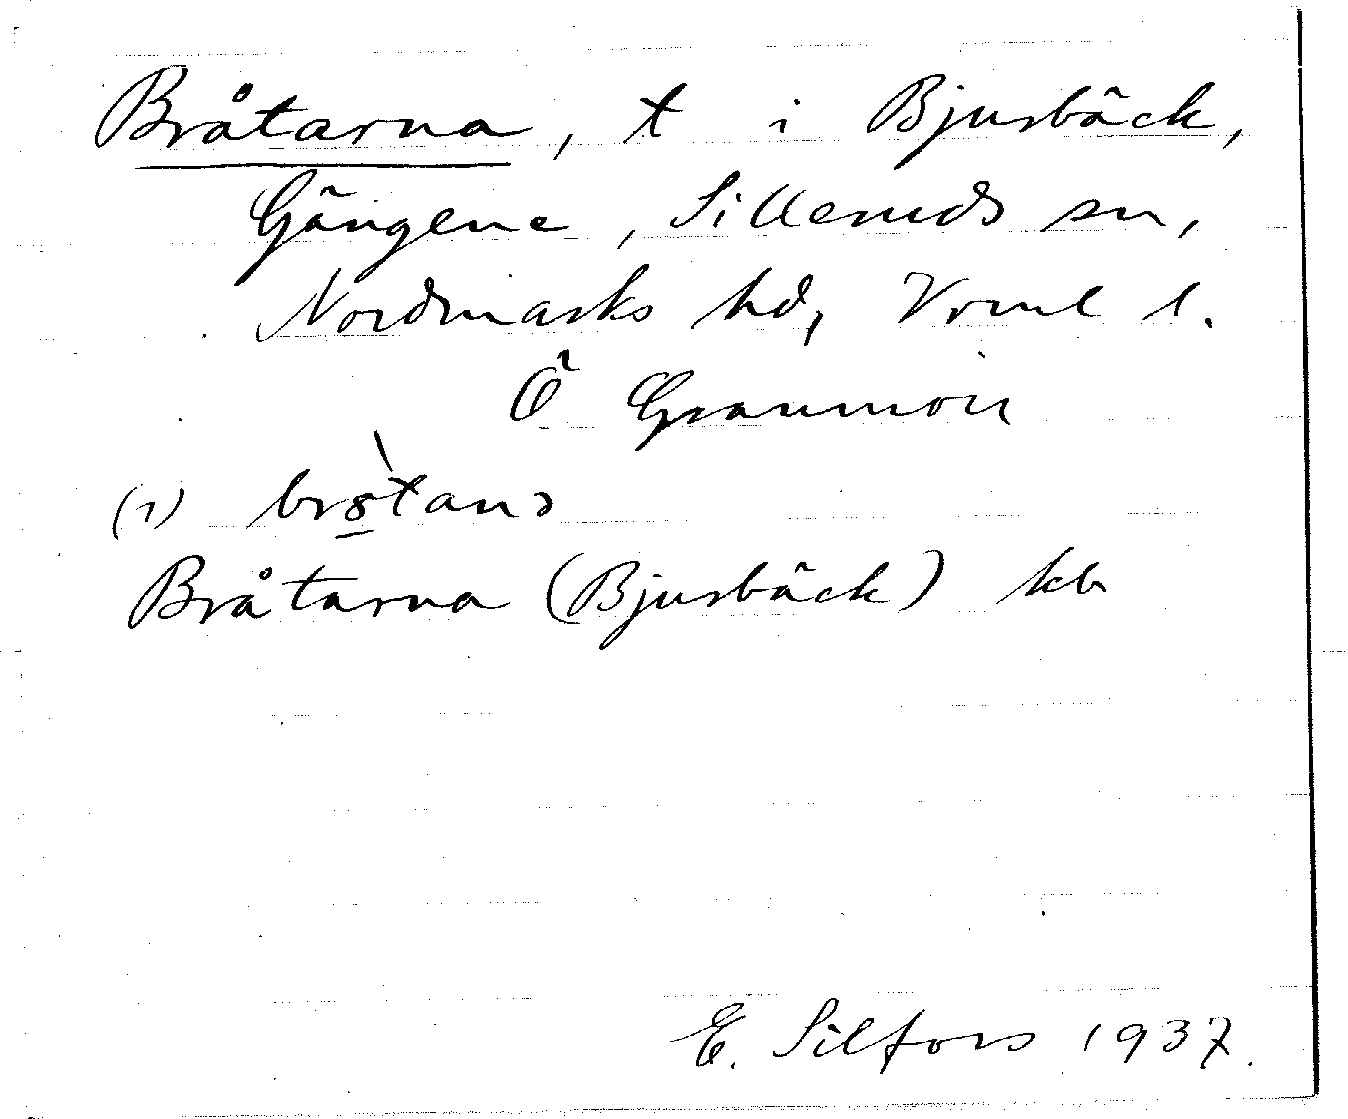 Bråtarna, t i Bjurbäck,
Gängene, Silleruds sn,
Nordmarks hd, Vrml l.
Ö Granmon
(1) br8̲̀tanə
Bråtarna (Bjurbäck) kb
E. Silfors 1937.